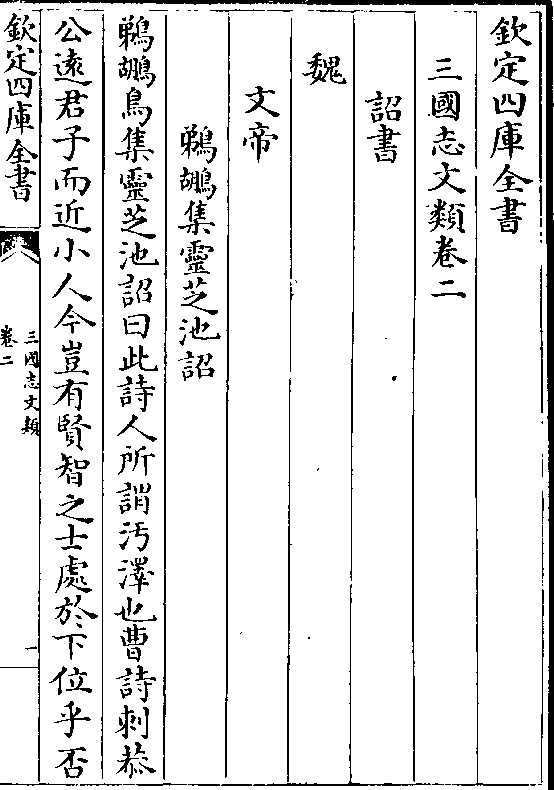 欽定四庫全書
三國志文類卷二
詔書
魏
文帝
鵜鶘集靈芝池詔
鵜鶘鳥集靈芝池詔曰此詩人所謂汚澤也曹詩刺恭
公遠君子而近小人今豈有賢智之士處於下位乎否
欽定四庫全書
三國志文類
卷二
一